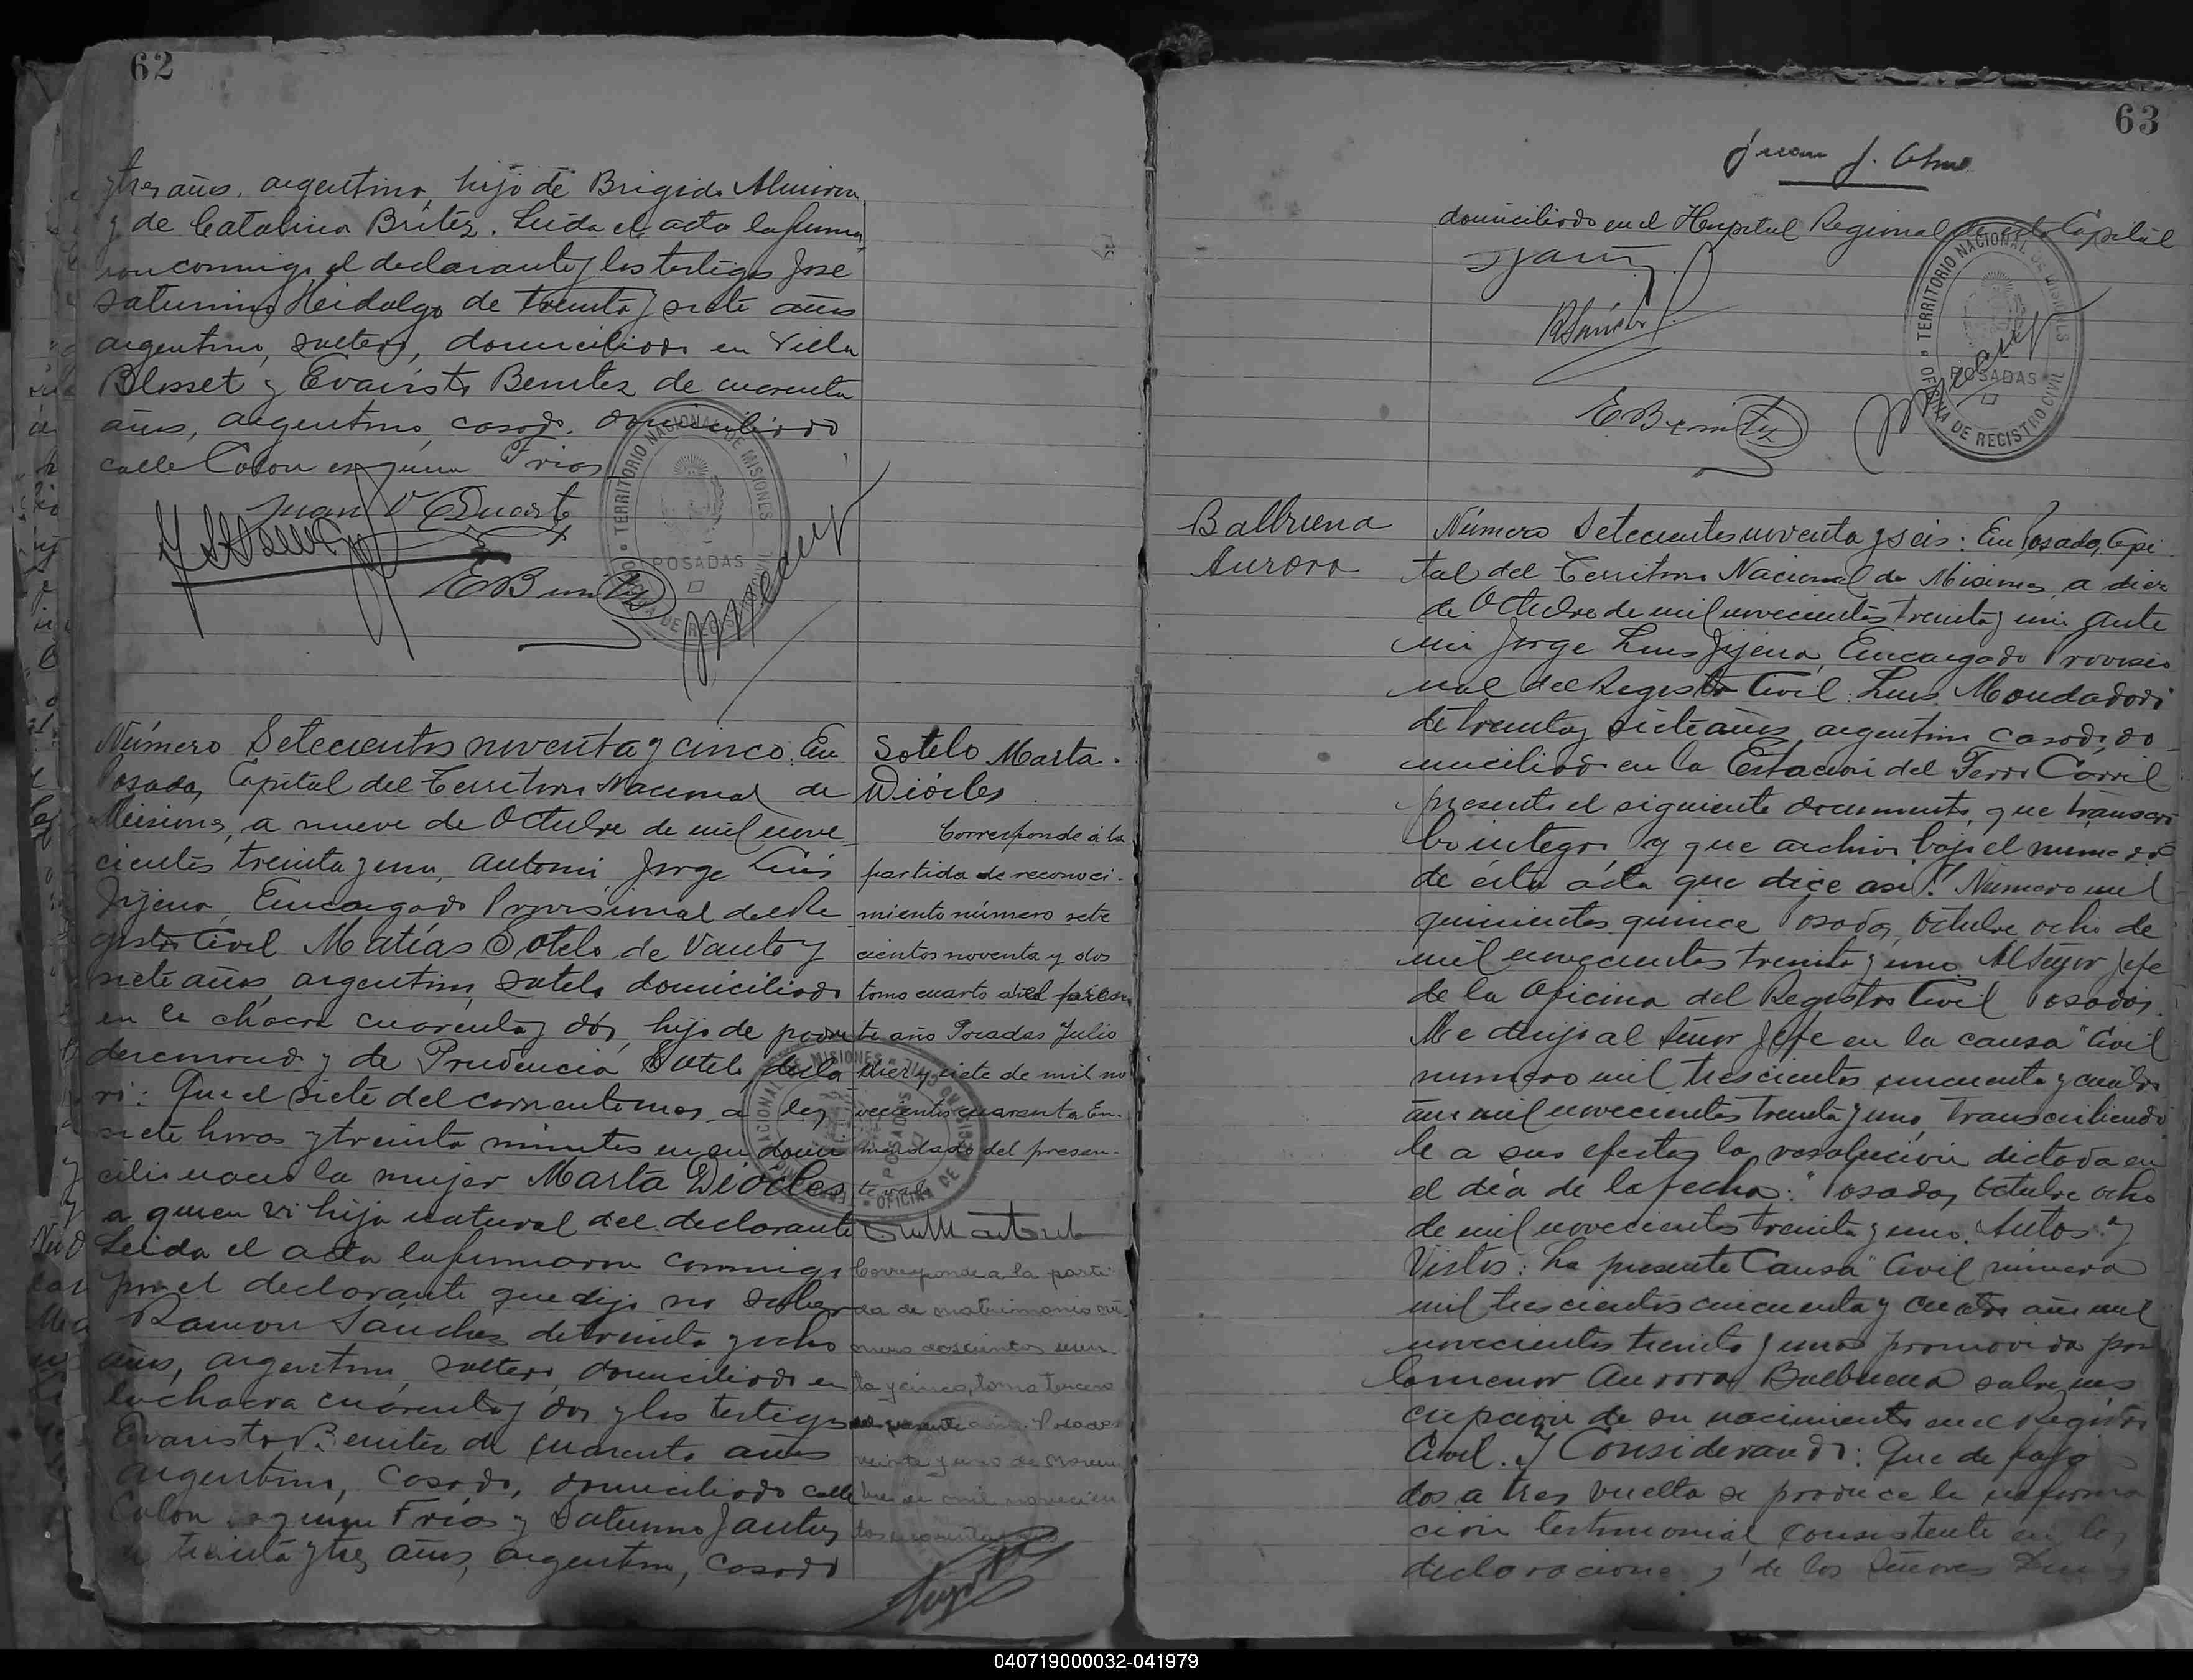 62
y tres años, argentino, hijo de Brigido Almiron
y de Catalina Britez. Leida el acta la firma
ron conmigo el declarante y los testigos José
Saturnino Hidalgo de treinta y siete años
argentino, soltero, domiciliado en Villa
Blosset y Evaristo Benitez de cuarenta
años, argentino, casado, domiciliado
calle Colon esquina Frias
Juan V Duarte
EBenitez
TERRITORIO NACIONAL DE MISIONES
POSADAS
OFICINA DE REGISTRO CIVIL
Número Setecientos noventa y cinco: En
Posadas, Capital del Territorio Nacional de
Misiones, a nueve de Octubre de mil nove
cientos treinta y uno, ante mi, Jorge Luis
Jijena, Encargado Provisional del Re
gistro Civil Matías Sotelo de veinte y
siete años, argentino, soltero domiciliado
en la chacra cuarenta y dos, hijo de padre
desconocido y de Prudencia Sotelo, decla
ró: Que el siete del corriente mes a las
siete horas y treinta minutos en su domi
cilio nació la mujer Marta Diócles
a quien vi hija natural del declarante
Leida el acta la firmaron conmigo
por el declarante que dijo no saber
Ramon Sánchez de treinta y ocho
años, argentino, soltero, domiciliado en
la chacra cuarenta y dos y los testigos
Evaristo Benitez de cuarenta años
argentino, casado, domiciliado calle
Colon esquina Frías y Saturno
de treinta y tres años, argentino, casado
Sotelo Marta
Diócles
Corresponde á la
partida de reconoci-
miento número sete
cientos noventa y dos
tomo cuarto del presen
te año Posadas Julio
diez y siete de mil no
vecientos cuarenta En-
mendado del presen-
te vale
Corresponde a la parti
da de matrimonio nú-
mero doscientos
ta y cinco, tomo tercero
presente año. Posadas
veinte y uno de
bre de mil novecien
tos
POSADAS
63
Juan J.
domiciliado en el Hospital Regional de esta Capital
RSánchez
EBenitez
TERRITORIO NACIONAL DE MISIONES
POSADAS
OFICINA DE REGISTRO CIVIL
Balbuena
Aurora
Número Setecientos noventa y seis: En Posadas, Capi-
tal del Territorio Nacional de Misiones, a diez
de Octubre de mil novecientos treinta y uno ante
mi Jorge Luis Jijena, Encargado Provisio
nal del Registro Civil: Luis Mondadori
de treinta y siete años, argentino casado, do
miciliado en la Estacion del Ferro Carril
presenta el siguiente documento, que transcri
bo integro y que archivo bajo el numero
de ésta acta que dice así: "Número mil
quinientos quince Posadas, Octubre ocho de
mil novecientos treinta y uno. Al Señor Jefe
de la Oficina del Registro Civil Posadas.
Me dirijo al Señor Jefe en la causa "Civil
numero mil trescientos cincuenta y cuatro
año mil novecientos treinta y uno, transcribiendo
le a sus efectos la resolución dictada en
el día de la fecha: "Posadas, Octubre ocho
de mil novecientos treinta y uno. Autos y
Vistos: La presente Causa "Civil número
mil trescientos cincuenta y cuatro año mil
novecientos treinta y uno promovida por
la menor Aurora Balbuena sobre ins
cripción de su nacimiento en el Registro
Civil. Y Considerando: Que de foja
dos a tres vuelta se produce la informa
ción testimonial consistente en las
declaraciones de los Señores
040719000032-041979